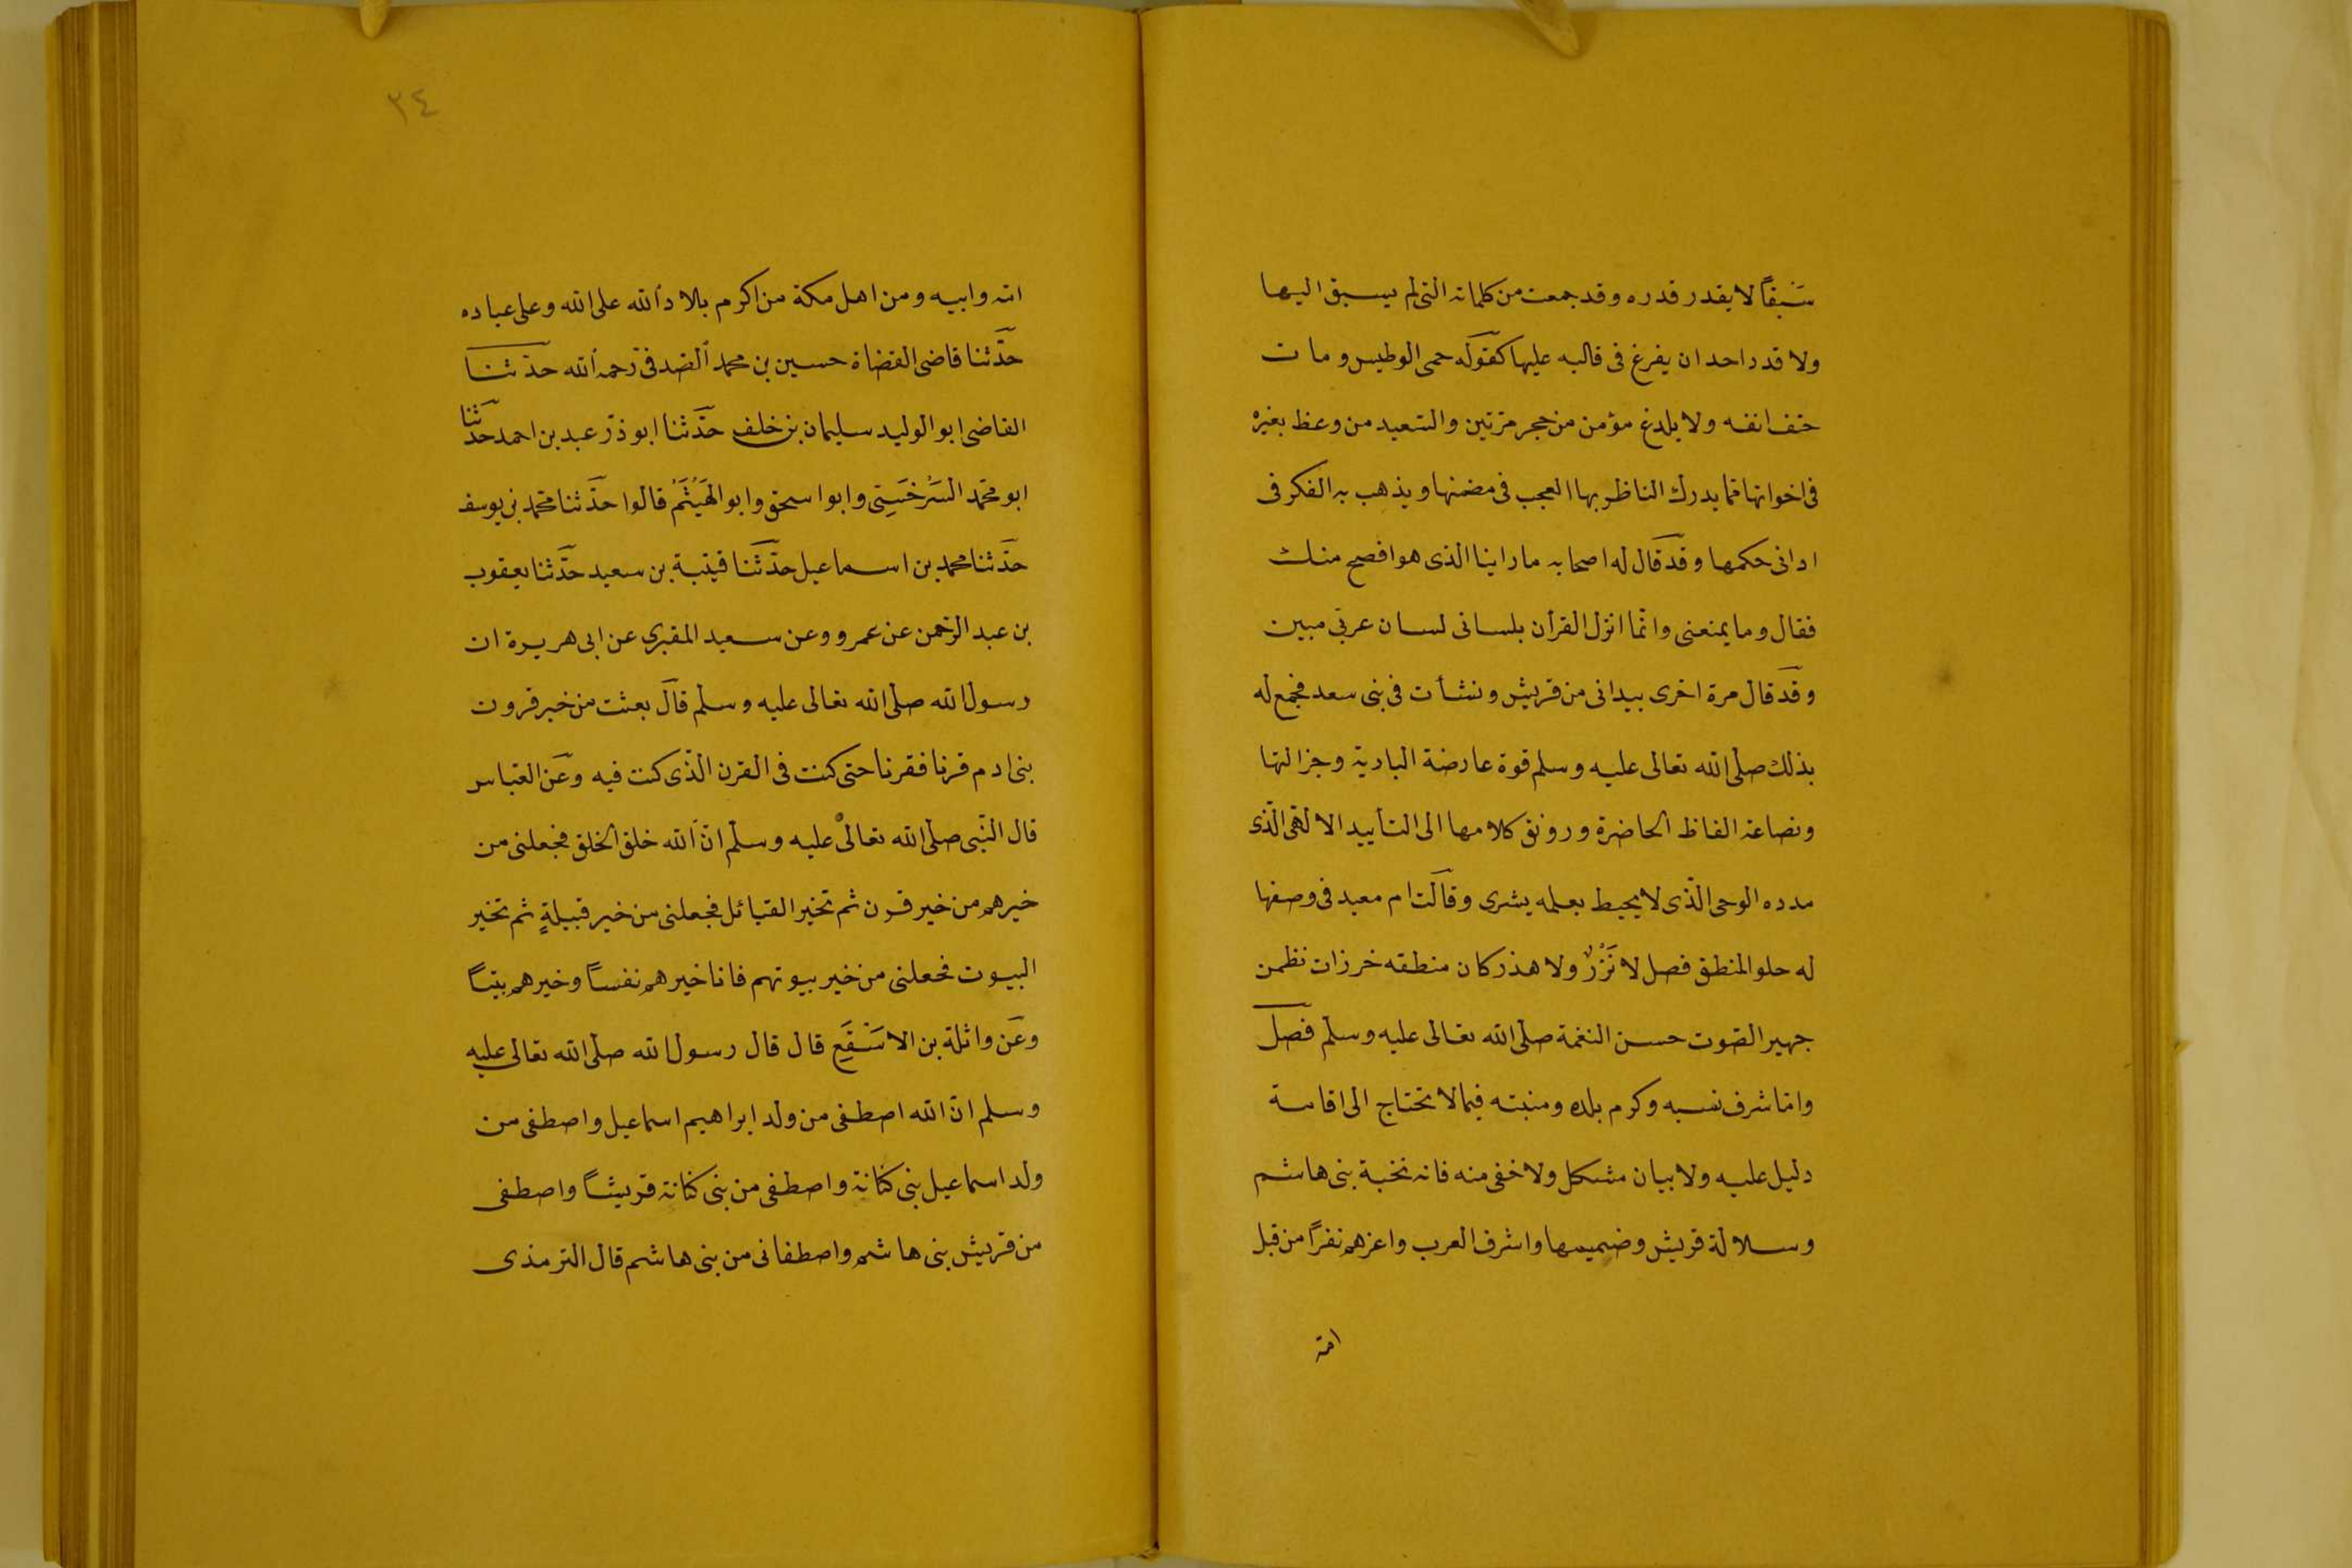 سَبقاً لا يقدر قدره وقد جمعت من كلماته التى لم يسبق اليها
ولا قدر احد ان يفرغ فى قالبه عليها كقوله حمى الوطيس ومات
حتف انفه ولا يلدغ مؤمن من حجر مرّتين والسّعيد من وعظ بغيره
فى اخواتها ممّا يدرك الناظر بها العجب فى مضمنها ويذهب به الفكر فى
ادانى حكمها وقد قال له اصحابه ما راينا الذى هو افصح منك
فقال وما يمنعنى وانّما انزل القرأن بلسانى لسان عربّى مبين
وقد قال مرة اخرى بيدانى من قريش ونشأت فى بنى سعد فجمع له
بذلك صلّى الله تعالى عليه وسلم قوة عارضة البادية وجزالتها
ونصاعة الفاظ الحاضرة ورونق كلامها الى التأييد الالهّى الّذى
مدده الوحى الّذى لا يحيط بعلمه بشرى وقالت ام معبد فى وصفها
له حلو المنطق فصل لا نَزْرٌ ولا هذر كان منطقه خرزات نظمن
جهير الصّوت حسن النغمة صلّى الله تعالى عليه وسلّم فصل
وامّا شرف نسبه وكرم بلده ومنبته فيما لا تحتاج الى اقامة
دليل عليه ولا بيان مشكل ولا خفى منه فانه نخبة بنى هاشم
وسلالة قريش وضميمها واشرف العرب واعزهم نفراً من قبل
امّه
٢٤
امّه وابيه ومن اهل مكة من اكرم بلاد الله على الله وعلى عباده
حدّثنا قاضى القضاة حسين بن محمد الصّدفىّ رحمه الله حدّثنا
القاضى ابو الوليد سليمان بن خلف حدّثنا ابو ذرّ عبد بن احمد حدّثنا
ابو محمّد السَّرْخَسِىّ وابو اسحق وابو الهَيْثَمُ قالوا حدّثنا محمّد بن يوسف
حدّثنا محمد بن اسماعيل حدّثنا قيتبة بن سعيد حدّثنا يعقوب
بن عبد الرّحمن عن عمرو وعن سعيد المقبرى عن ابى هريرة ان
رسول الله صلّى الله تعالى عليه وسلّم قال بعثت من خير قرون
بنى ادم قرنا فقرنا حتى كنت فى القرن الّذى كنت فيه وعن العبّاس
قال النّبى صلّى الله تعالى عليه وسلّم انّ الله خلق الخلق فجعلنى من
خيرهم من خير قرن ثم تخير القبائل فجعلنى من خير قبيلةٍ ثم تخير
البيوت فجعلنى من خير بيوتهم فانا خيرهم نفساً وخيرهم بيتاً
وعن واثلة بن الاسْقَعِ قال قال رسول الله صلّى الله تعالى عليه
وسلم انّ الله اصطفى من ولد ابراهيم اسماعيل واصطفى من
ولد اسماعيل بنى كنانة واصطفى من بنى كنانة قريشاً واصطفى
من قريش بنى هاشم واصطفانى من بنى هاشم قال الترمذى